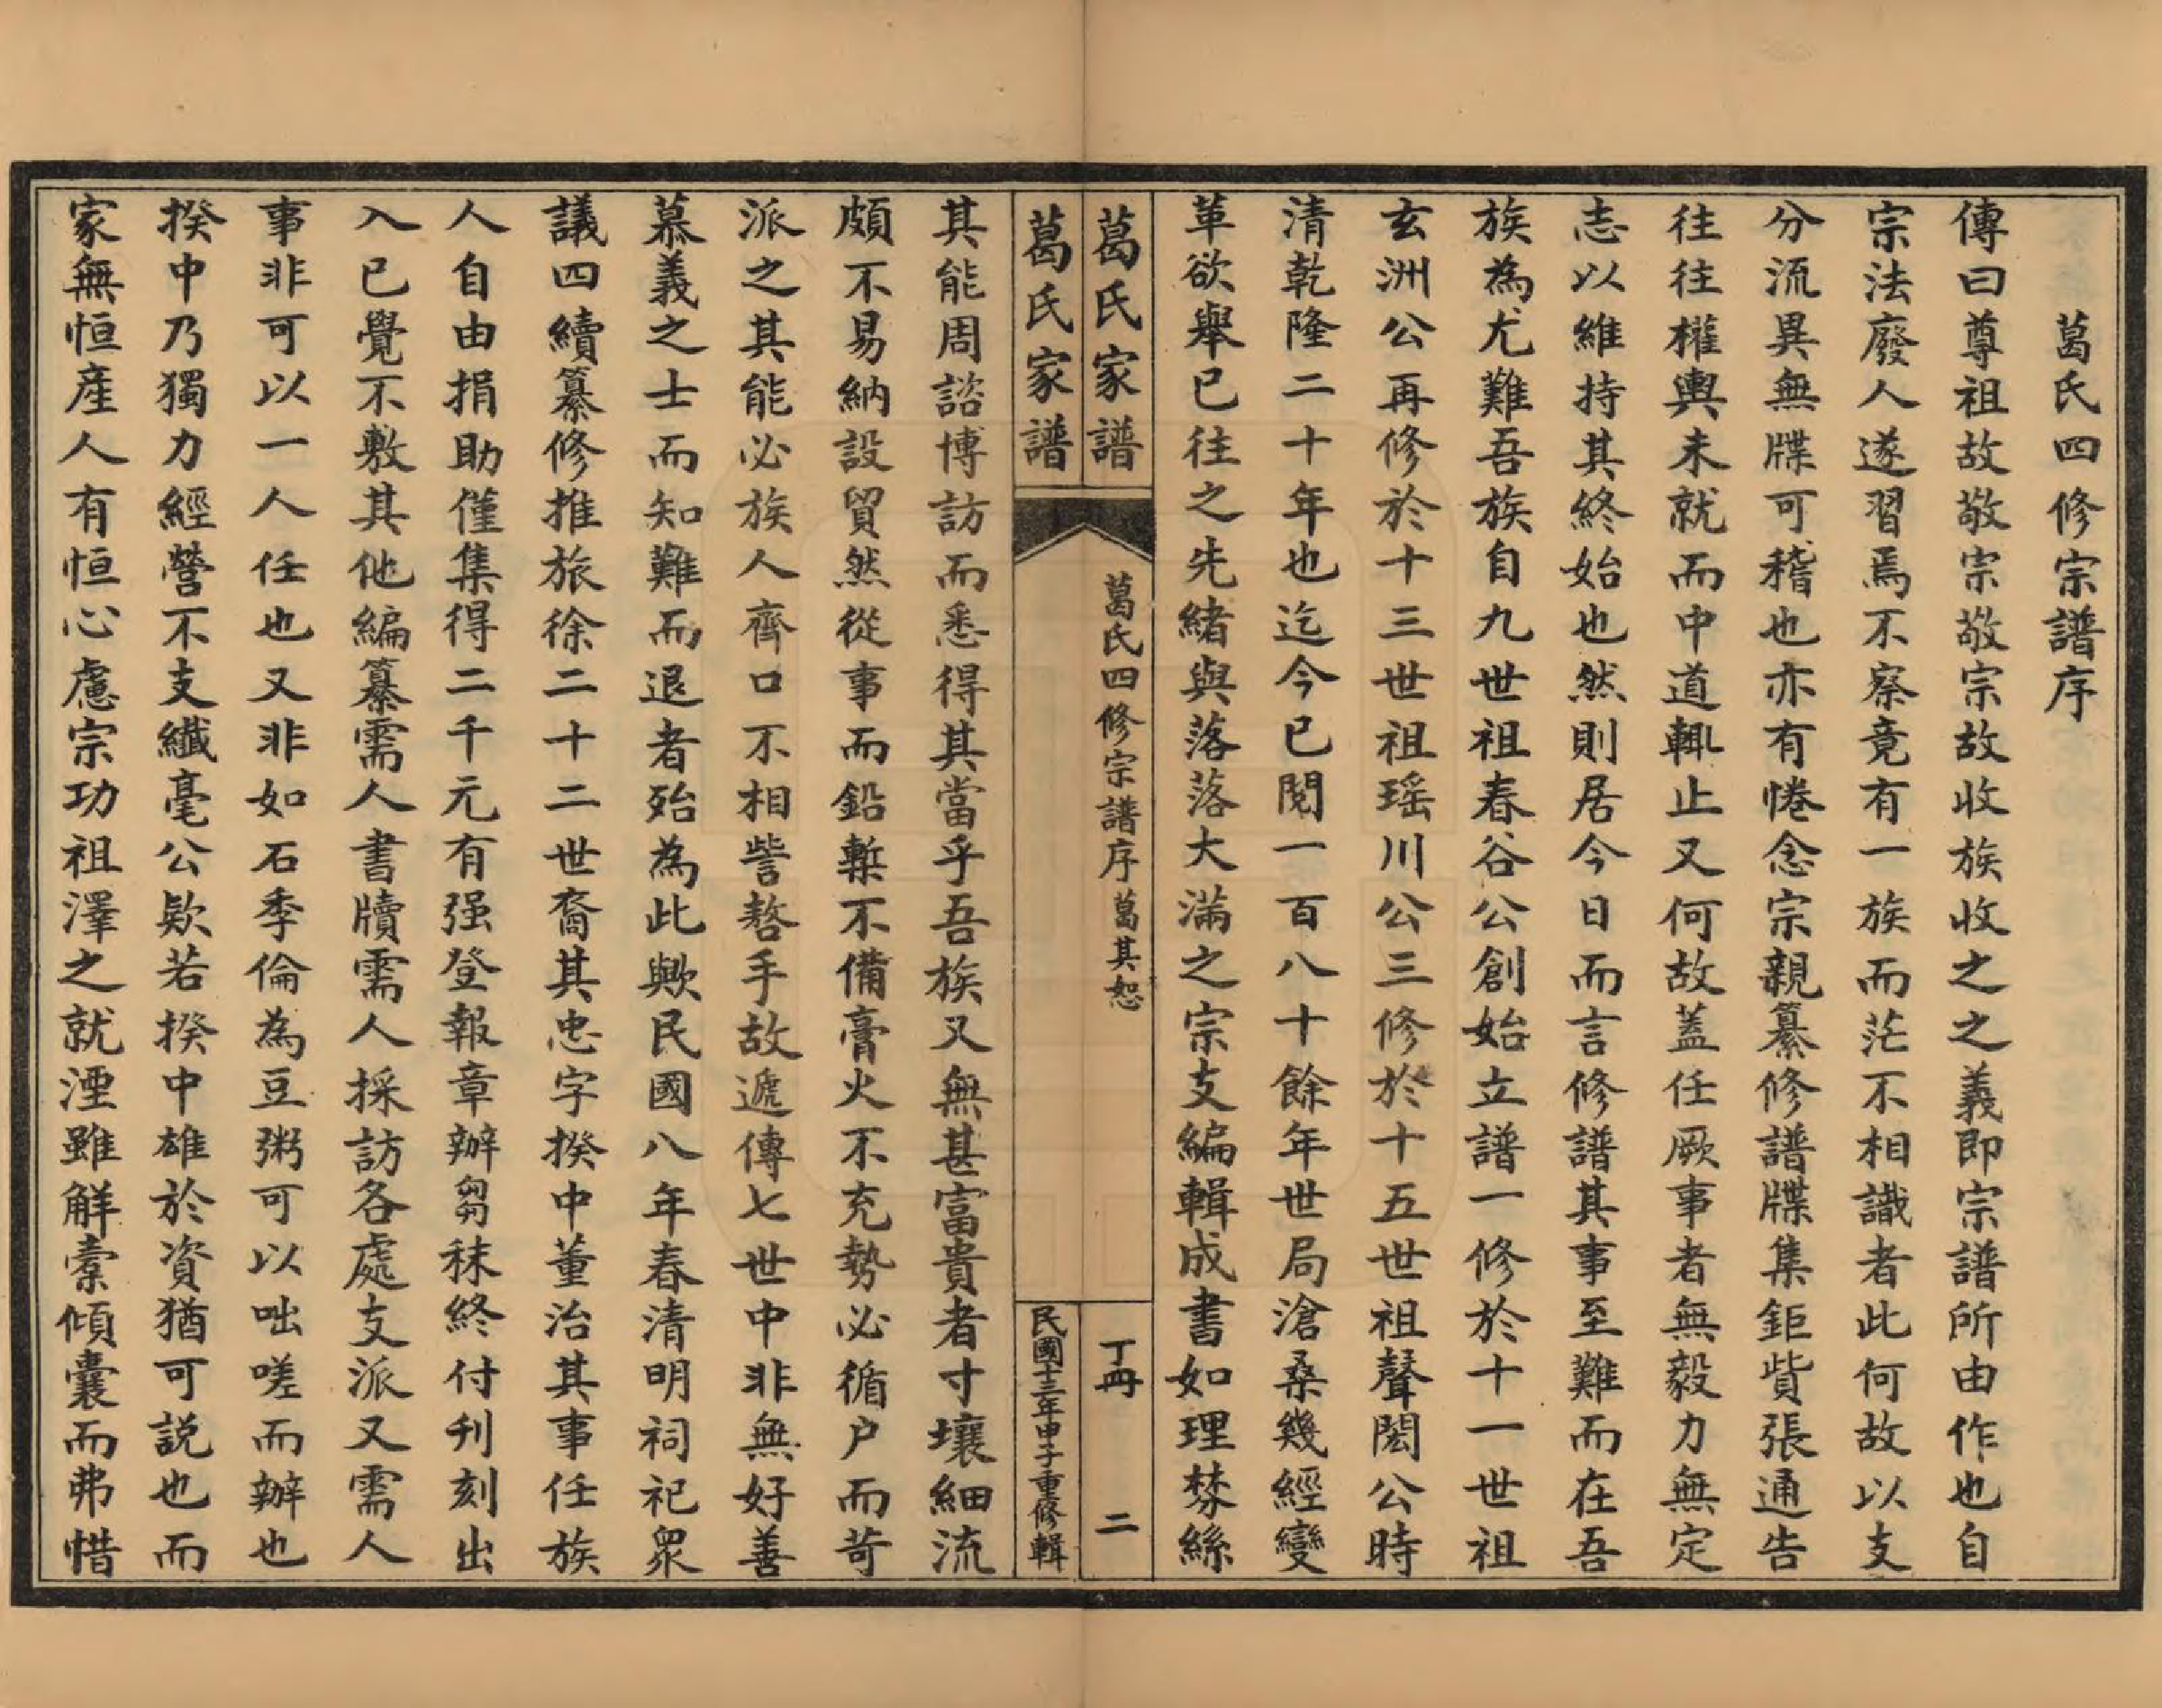 葛氏四修宗譜序
傳曰尊祖故敬宗敬宗故收族收之之義即宗譜所由作也自
宗法廢人遂習焉不察竟有一族而茫不相識者此何故以支
分流異無牒可稽也亦有惓念宗親纂修譜牒集鉅貲張通告
往往權輿未就而中道輒止又何故蓋任厥事者無毅力無定
志以維持其終始也然則居今日而言修譜其事至難而在吾
族為尤難吾族自九世祖春谷公創始立譜一修於十一世祖
玄洲公再修於十三世祖瑤川公三修於十五世祖聲閎公時
清乾隆二十年也迄今已閱一百八十餘年世局滄桑幾經變
革欲舉已往之先緒與落落大滿之宗支編輯成書如理棼絲
葛氏家譜
葛氏四修宗譜序 葛其恕
丁冊 二
葛氏家譜
民國十三年申子重修輯
其能周諮博訪而悉得其當乎吾族又無甚富貴者寸壤細流
頗不易納設貿然從事而鉛槧不備膏火不充勢必循户而苛
派之其能必族人齊口不相訾嗸手故遞傳七世中非無好善
慕義之士而知難而退者殆為此歟民國八年春清明祠祀眾
議四續纂修推旅徐二十二世裔其忠字揆中董治其事任族
人自由捐助僅集得二千元有强登報章辦芻秣終付刋刻出
入已覺不敷其他編纂需人書牘需人採訪各處支派又需人
事非可以一人任也又非如石季倫為豆粥可以咄嗟而辦也
揆中乃獨力經營不支纎毫公欵若揆中雄於資猶可説也而
家無恒產人有恒心慮宗功祖澤之就湮雖解橐傾囊而弗惜